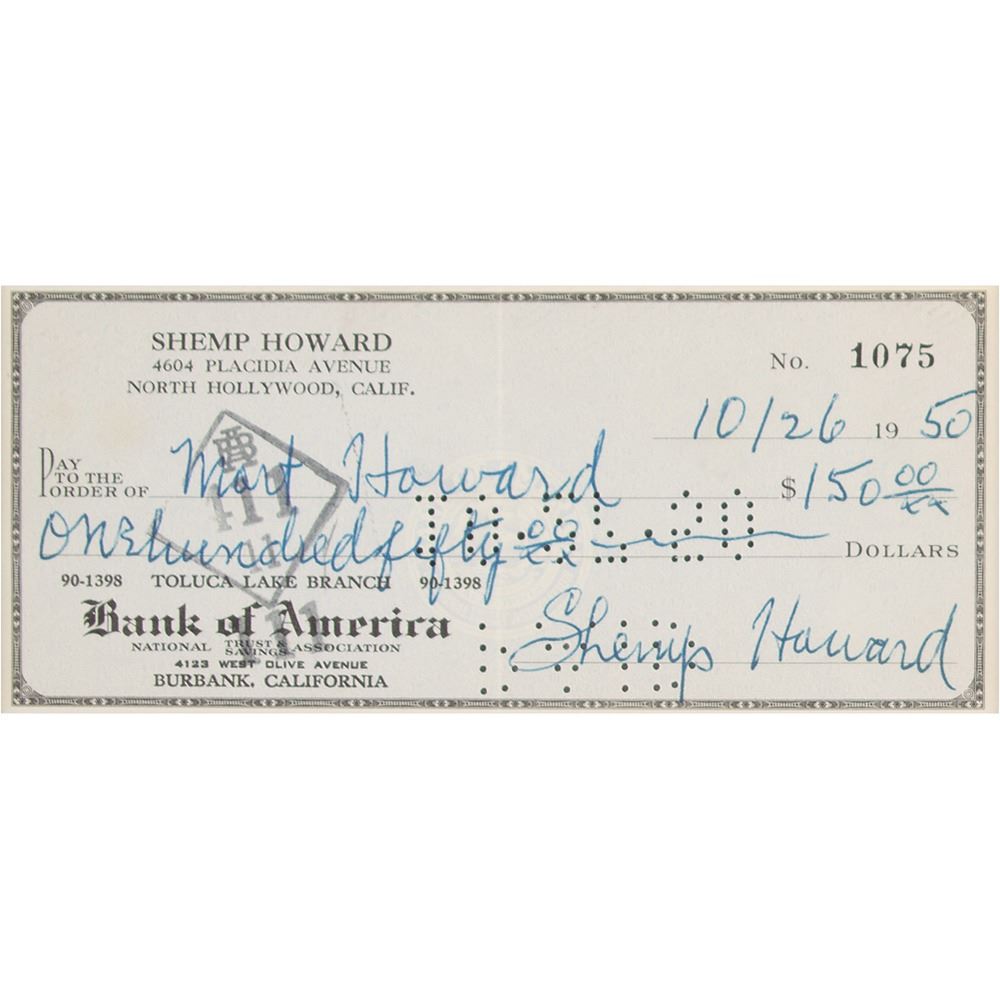 SHEMP HOWARD
4604 PLACIDIA AVENUE
NORTH HOLLYWOOD, CALIF.
No. 1075
10/26 1950
PAY TO THE ORDER OF Mort Howard $150 00/xx
One hundred fifty 00/xx DOLLARS
90-1398 TOLUCA LAKE BRANCH 90-1398
Bank of America
NATIONAL TRUST & SAVINGS ASSOCIATION
4123 WEST OLIVE AVENUE
BURBANK, CALIFORNIA
Shemp Howard
111